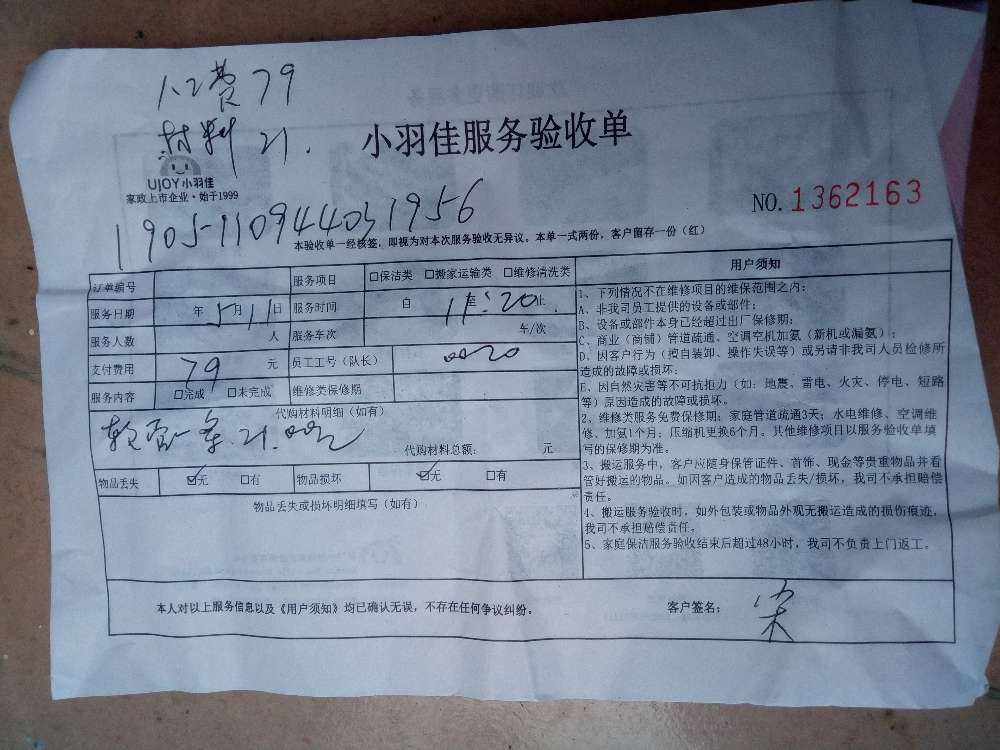 人工费79
材料21.
小羽佳服务验收单
UJOY小羽佳
家政上市企业·始于1999
NO.1362163
190511094403 1956
本验收单一经核签，即视为对本次服务验收无异议。本单一式两份，客户留存一份（红）
订单编号 服务项目 □保洁类 □搬家运输类 □维修清洗类
服务日期 年5月11日 服务时间 自 至 11:20止
服务人数 人 服务车次 车/次
支付费用 79 元 员工工号（队长） 0020
服务内容 □完成 □未完成 维修类保修期
代购材料明细（如有）
软管一条.21.00元
代购材料总额： 元
物品丢失 ☑无 □有 物品损坏 ☑无 □有
物品丢失或损坏明细填写（如有）
用户须知
1、下列情况不在维修项目的维保范围之内：
A、非我司员工提供的设备或部件；
B、设备或部件本身已经超过出厂保修期；
C、商业（商铺）管道疏通、空调空机加氨（新机或漏氨）；
D、因客户行为（擅自装卸、操作失误等）或另请非我司人员检修所
造成的故障或损坏；
E、因自然灾害等不可抗拒力（如：地震、雷电、火灾、停电、短路
等）原因造成的故障或损坏。
2、维修类服务免费保修期：家庭管道疏通3天；水电维修、空调维
修、加氨1个月；压缩机更换6个月。其他维修项目以服务验收单填
写的保修期为准。
3、搬运服务中，客户应随身保管证件、首饰、现金等贵重物品并看
管好搬运的物品。如因客户造成的物品丢失/损坏，我司不承担赔偿
责任。
4、搬运服务验收时，如外包装或物品外观无搬运造成的损伤痕迹，
我司不承担赔偿责任。
5、家庭保洁服务验收结束后超过48小时，我司不负责上门返工。
本人对以上服务信息以及《用户须知》均已确认无误，不存在任何争议纠纷。
客户签名： 宋